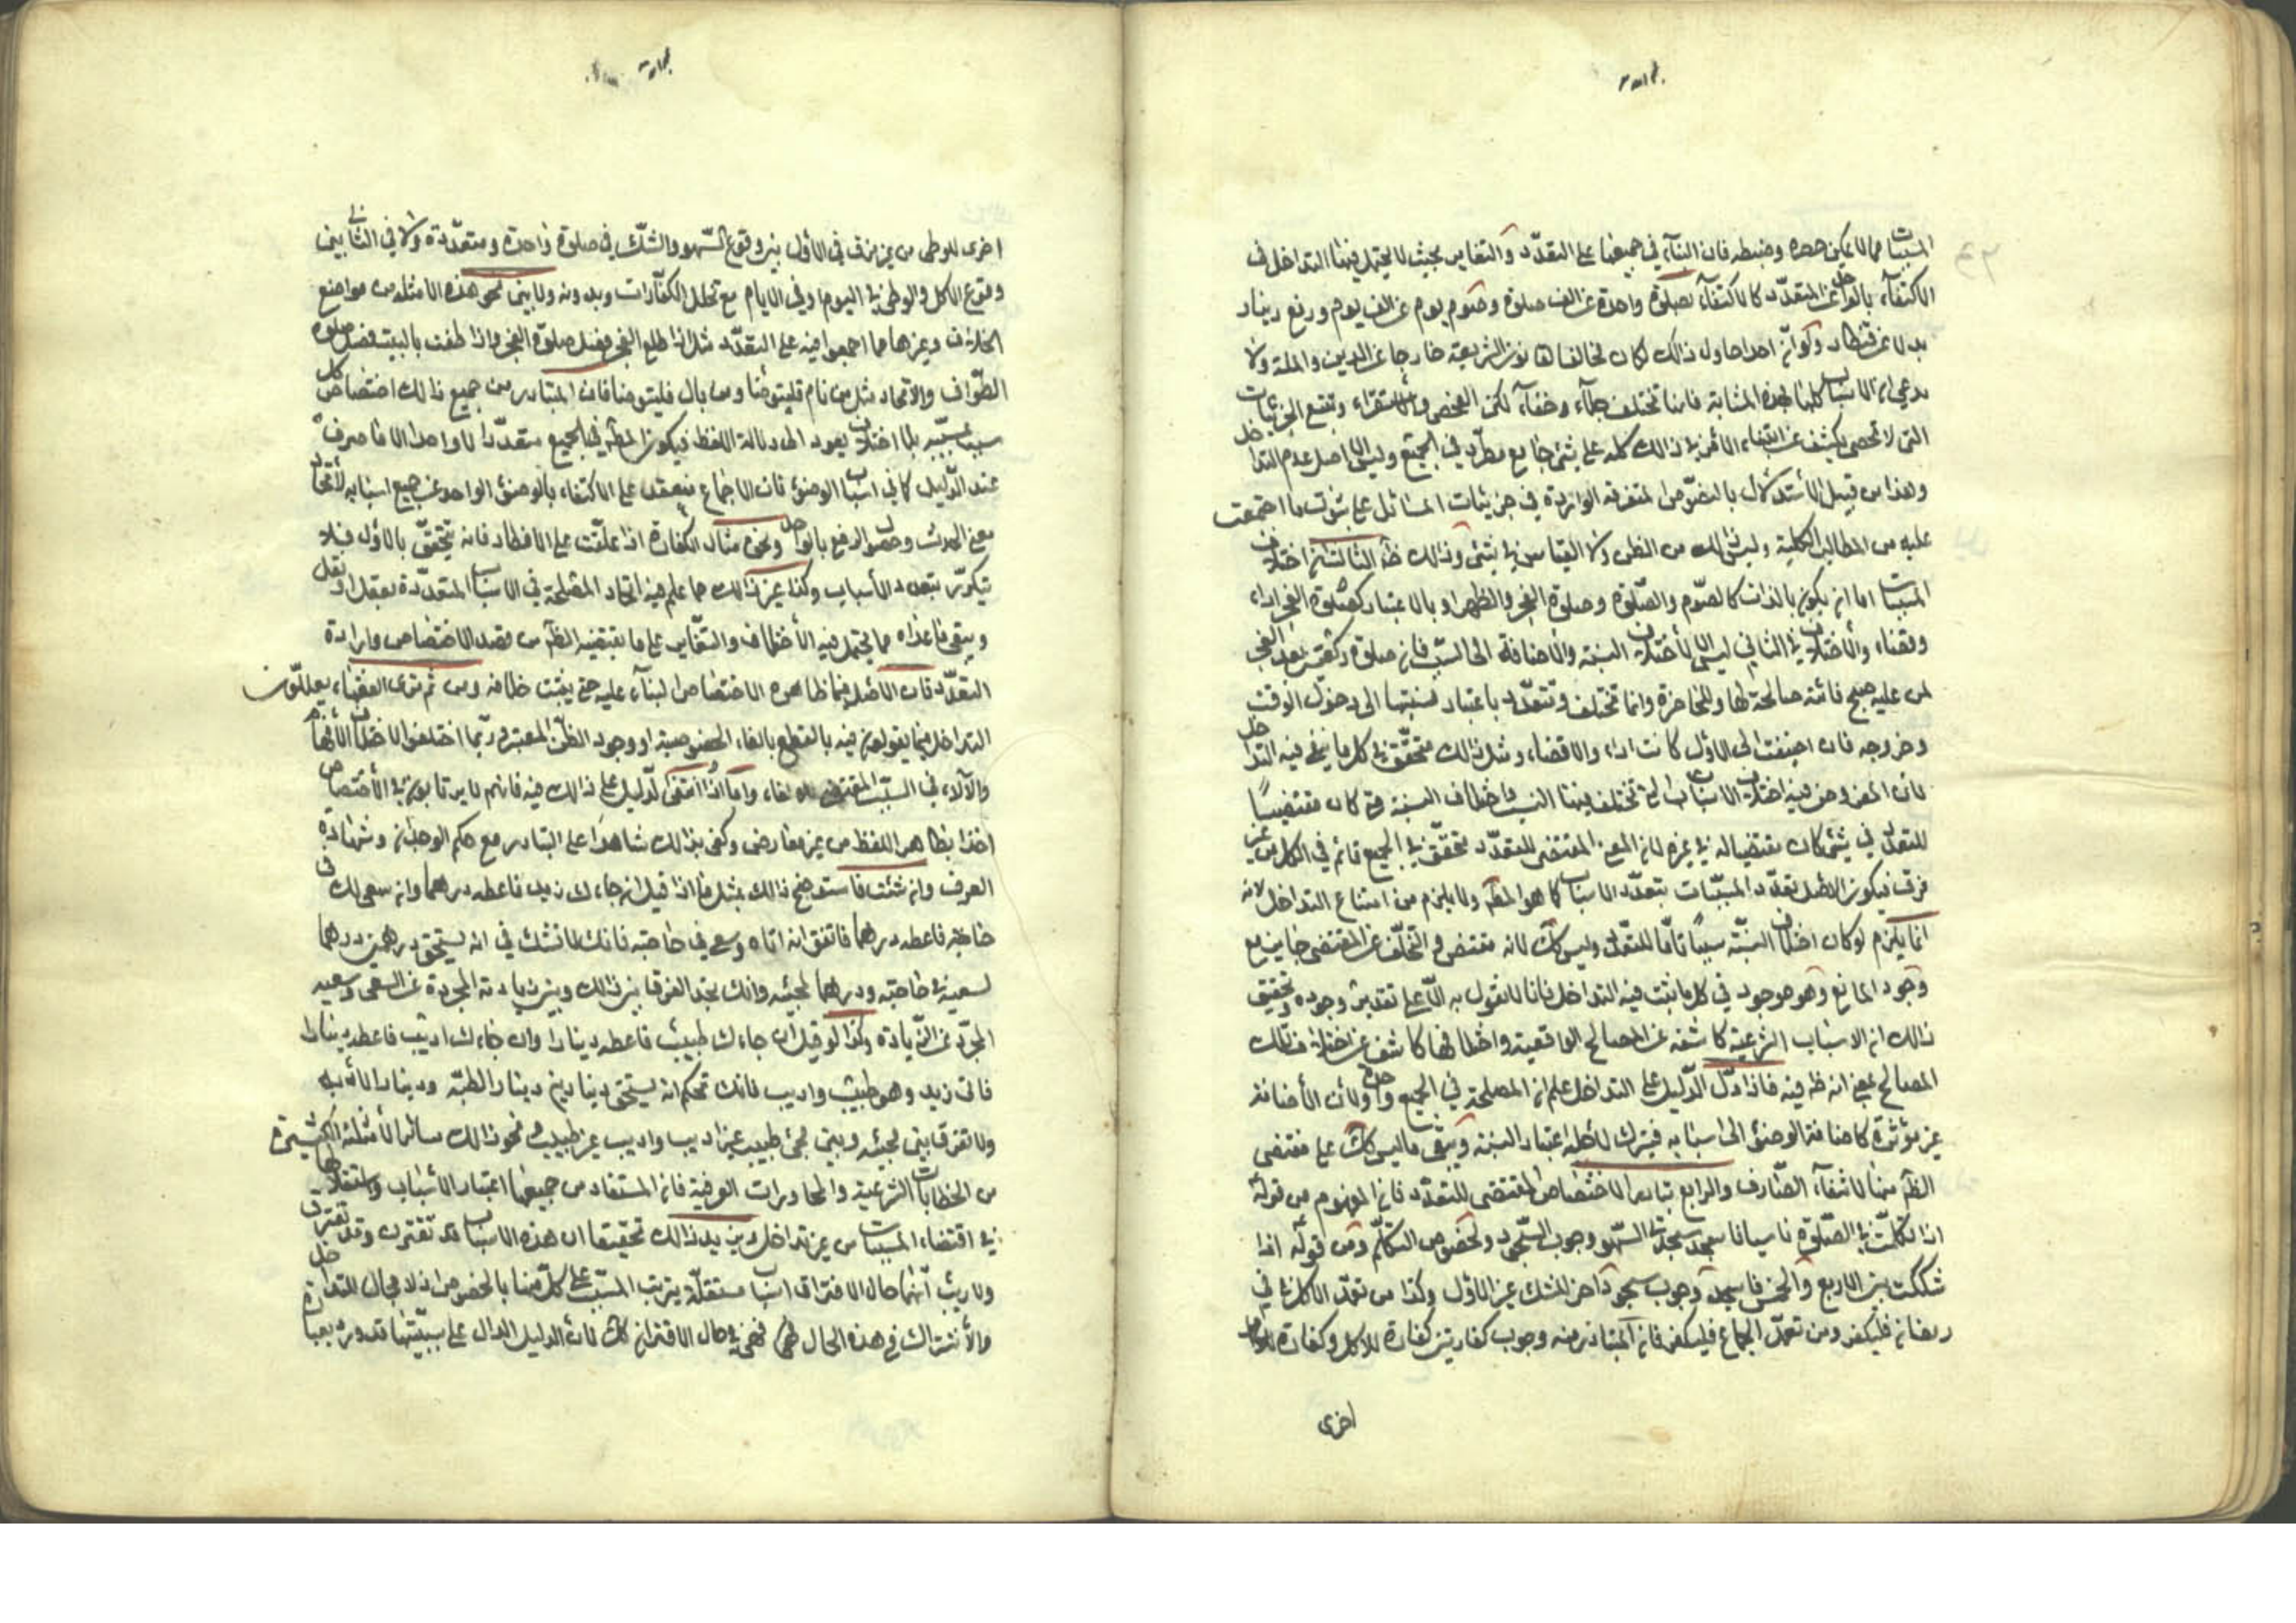 المسببات مما لا يمكن حصره وضبطه فان البناء في جميعها على التعدّد والتغاير بحيث لا يحتمل فيها التداخل في
الاكتفاء بالواحد عن المتعدّد كالاكتفاء بصلوة واحدة عن الف صلوة وصوم يوم عن الف يوم ودفع دينار
بدلا عن قنطار ولو انّ احدا حاول ذلك لكان مخالفا لقانون الشريعة خارجا عن الدين والملة ولا
ندعي ان الاسباب كلها بهذه المثابة فانها تختلف جلاء وخفاء لكن الفحص والاستقراء وتتبع الجزئيات
التي لا تحصى يكشف عن ابتناء الامر في ذلك كله على شئ جامع مطّرد في الجميع وليس الا اصل عدم التداخل
وهذا من قبيل الاستدلال بالنصوص المتفرقة الواردة في جزئيات المسائل على ثبوت ما اجتمعت
عليه من المطالب الكلية وليس ذلك من الظن ولا القياس في شئ وذلك ظ الثالث ان اختلاف
المسببات اما ان يكون بالذات كالصوم والصلوة وصلوة الفجر والظهر او بالاعتبار كصلوة الفجر اداء
وقضاء والاختلاف في الثاني ليس الا لاختلاف النسبة والاضافة الى السبب فان صلوة ركعتين بعد الفجر
لمن عليه صبح فائتة صالحة لها وللحاضرة وانما تختلف وتتعدّد باعتبار نسبتها الى دخول الوقت
وخروجه فان اضيفت الى الاول كانت اداء والا قضاء ومثل ذلك متحقّق في كل ما ينفى فيه التداخل
لان المفروض فيه اختلاف الاسباب التي تختلف فيها النسب واختلاف النسبة متى كان مقتضيا
للتعدد في شئ كان مقتضيا له في غيره لان المعنى المقتضى للتعدّد متحقّق في الجميع قائم في الكل من غير
فرق فيكون الاصل تعدّد المسبّبات بتعدّد الاسباب كما هو المط ولا يلزم من امتناع التداخل لانه
انما يلزم لو كان اختلاف النسبة سببا تامّا للتعدّد وليس كك لانه مقتض والتخلّف عن المقتضى جايز مع
وجود المانع وهو موجود في كل ما يثبت فيه التداخل فانا لا نقول به الّا على تقدير وجوده وتحقيق
ذلك ان الاسباب الشرعية كاشفة عن المصالح الواقعية واختلافها كاشف عن اختلاف تلك
المصالح بمعنى انه ظ فيه فاذا دلّ الدليل على التداخل علم ان المصلحة في الجميع واحدة ولان الاضافة
غير مؤثرة كاضافة الوضوء الى اسبابه فيترك لاجله اعتبار النسبة ويبقى ما ليس كك على مقتضى
الظ منها لانتفاء الصارف والرابع تبادر الاختصاص المقتضى للتعدّد فان المفهوم من قوله
اذا تكلّمت في الصلوة ناسيا فاسجد سجدتي السهو وجوب السجود لخصوص التكلّم ومن قوله اذا
شككت بين الاربع والخمس فاسجد وجوب سجود آخر للشك غير الاول وكذا من تعمّد الاكل في
رمضان فليكفر ومن تعمّد الجماع فليكفر فان المتبادر منه وجوب كفارتين كفارة للاكل وكفارة
اخرى
اخرى للوطى من غير فرق في الاول بين وقوع السهو والشك في صلوة واحدة ومتعدّدة ولا في الثاني بين
وقوع الاكل والوطى في اليوم او في الايام مع تخلل الكفّارات وبدونه ولا بين نحو هذه الامثلة من مواضع
الخلاف وغيرها مما اجمعوا فيه على التعدّد مثل اذا طلع الفجر فصل صلوة الفجر واذا طفت بالبيت فصل صلوة
الطواف والاتحاد مثل من نام فليتوضا ومن بال فليتوضا فان المتبادر من جميع ذلك اختصاص كل
سبب بمسبّبه بلا اختلاف يعود الى دلالة اللفظ فيكون الظ في الجميع متعدّدا لا واحدا الا ما صرف
عند الدليل كما في اسباب الوضوء فان الاجماع منعقد على الاكتفاء بالوضوء الواحد عن جميع اسبابه لاتحاد
معنى الحدث وحصول الرفع بالواحد ونحوه مثال الكفارة اذا علّقت على الافطار فانه يتحقّق بالاول فلا
يتكرّر بتعدد الاسباب وكذا غير ذلك مما علم فيه اتحاد المصلحة في الاسباب المتعدّدة بعقل او نقل
ويبقى ما عداه مما يحتمل فيه الاختلاف والتغاير على ما يقتضيه الظ من قصد الاختصاص وارادة
التعدّد فان الاصل فيما ظاهره الاختصاص البناء عليه حتى يثبت خلافه ومن ثم ترى الفقهاء يعلّلون
التداخل فيما يقولون فيه بالقطع بالغاء الخصوصية او وجود الظن المعتبر وربّما اختلفوا لاختلاف الافهام
والآراء في السبب المقتضي للالغاء واما اذا انتفى الدليل على ذلك فيه فانهم لا يرتابون في الاختصاص
اخذا بظاهر اللفظ من غير معارض وكفى بذلك شاهدا على التبادر مع حكم الوجدان وشهادة
العرف وان شئت فاستوضح ذلك بمثل ما اذا قيل ان جاءك زيد فاعطه درهما وان سعى لك في
حاجة فاعطه درهما فاتفق انه اتاه وسعى في حاجته فانك لا تشك في انه يستحق درهمين درهما
لسعيه في حاجته ودرهما لمجيئه وانك تجد الفرق بين ذلك وبين زيادته المجردة عن السعى وسعيه
المجرّد عن الزيادة وكذا لو قيل ان جاءك طبيب فاعطه دينارا وان جاءك اديب فاعطه دينارا
فاتى زيد وهو طبيب واديب فانك تحكم انه يستحق دينارين دينار الطبّه ودينارا لادبه
ولا تفرق بين مجيئه وبين مجئ طبيب غير اديب واديب غير طبيب ونحو ذلك سائر الامثلة الكثيرة
من الخطابات الشرعية والمحاورات العرفية فان المستفاد من جميعها اعتبار الاسباب واستقلالها
في اقتضاء المسببات من غير تداخل ويزيد ذلك تحقيقا ان هذه الاسباب قد تقترن وقد تفترق
ولا ريب انّها حال الافتراق اسباب مستقلّة يترتب المسبب على كلّ منها بالخصوص اذ لا مجال للتداخل
والاشتراك في هذه الحال فهى في حال الاقتران كك لان الدليل الدال على سببيّتها قد